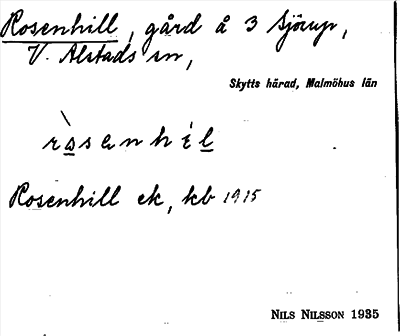 Rosenhill, gård å 3 Sjörup,
V. Alstads sn,
Skytts härad, Malmöhus län
ròsenhíl
Rosenhill ek, kb 1915
NILS NILSSON 1935